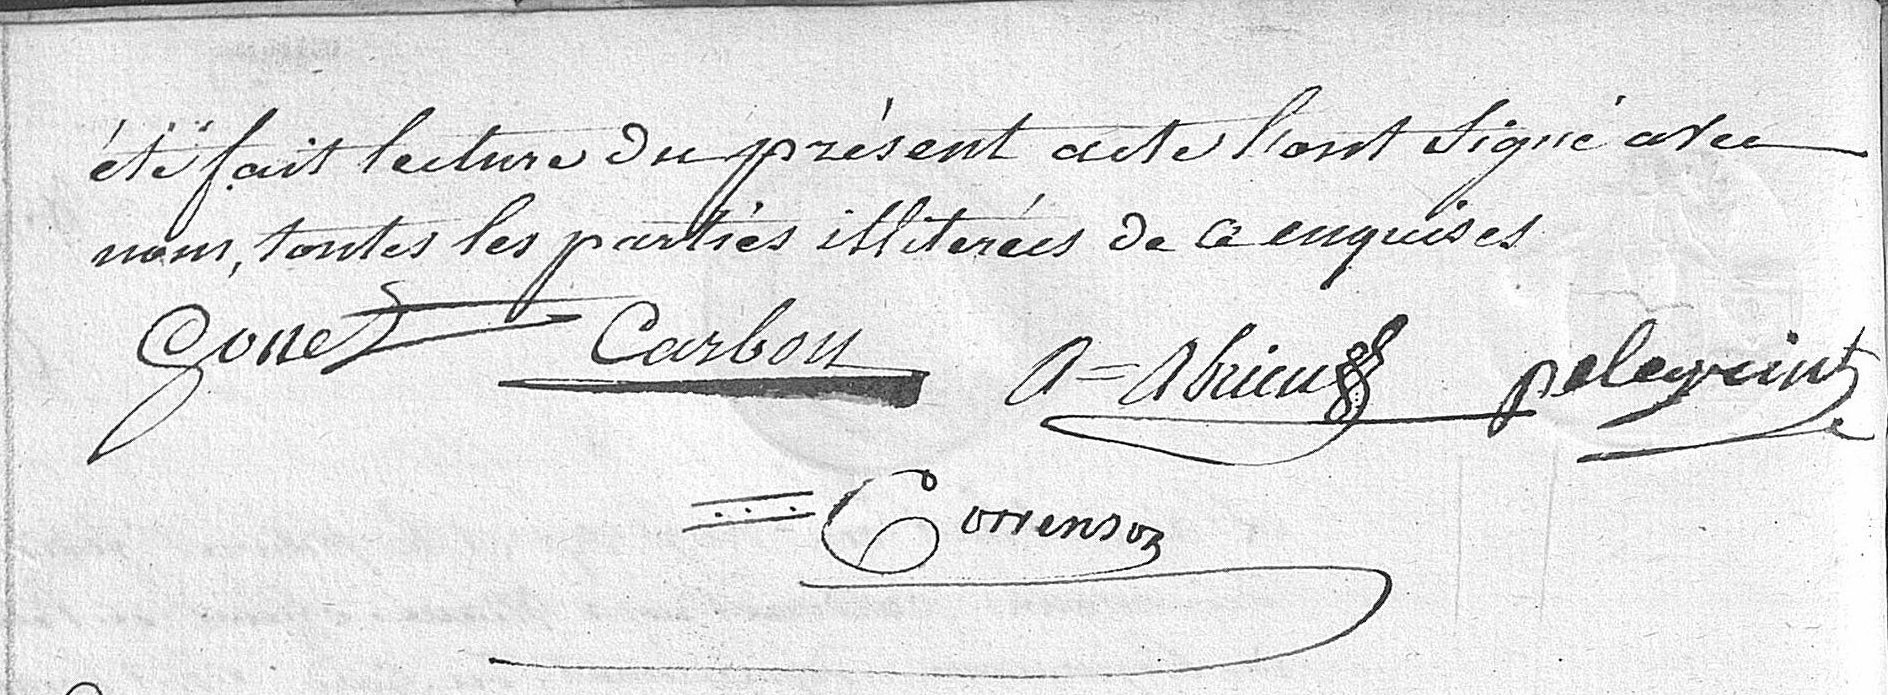 été fait lecture du présent acte l'ont signé avec
nous, toutes les parties illiterées de ce enquises
Gonet Carbon A = Abrieu pelegrint
Correnson